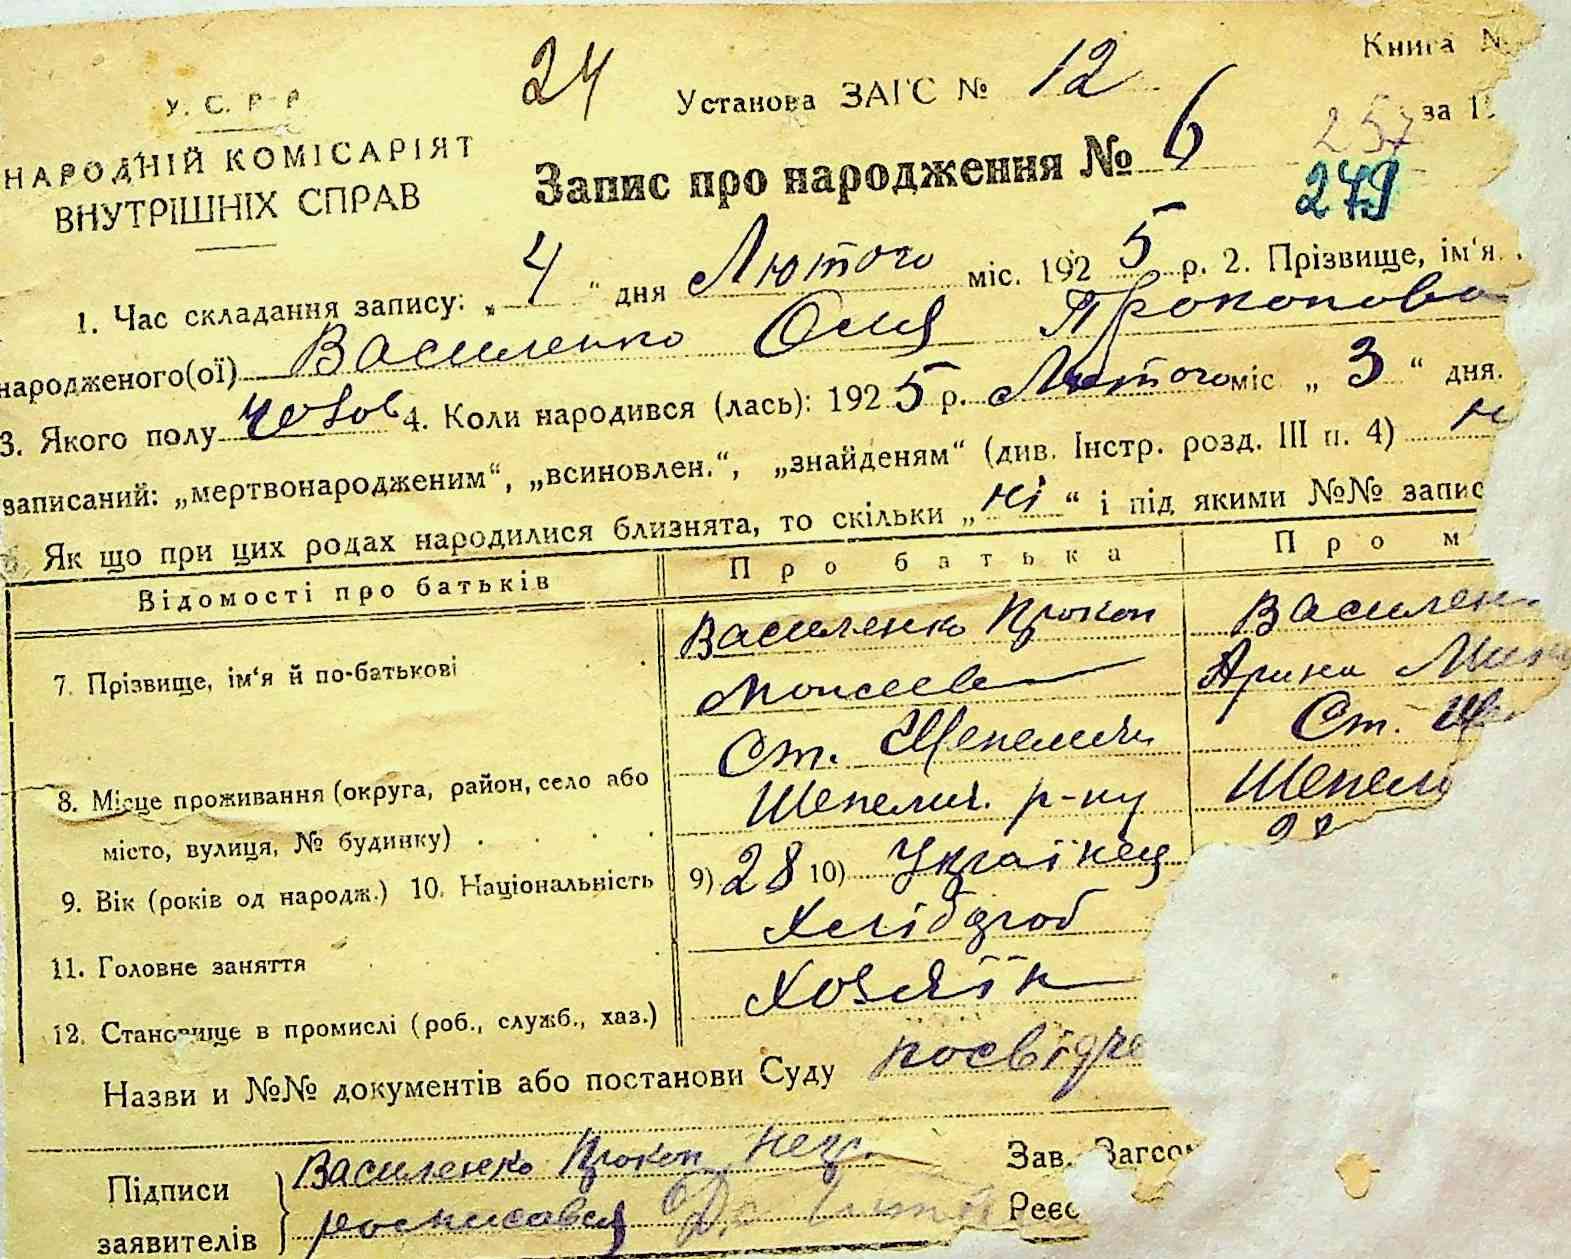 Книга №
У. С. Р Р
24 Установа ЗАГС № 12
за 1
257
НАРОДНІЙ КОМІСАРІЯТ
ВНУТРІШНІХ СПРАВ
Запис про народження № 6
249
1. Час складання запису: „ 4 “ дня Лютого міс. 1925 р. 2. Прізвище, ім‘я
народженого(ої) Василенко Прокопова
3. Якого полу чолов 4. Коли народився (лась): 1925 р. Лютого міс „ 3 “ дня.
записаний: „мертвонародженим“, „всиновлен.“, „знайденям“ (див. Інстр. розд. III п. 4) н
Як що при цих родах народилися близнята, то скільки „ ні “ і під якими №№ запис
Відомості про батьків Про батька Про м
7. Прізвище, ім‘я й по-батькові
Василенко Прокоп Василен
Моисеев Арина Мин
Ст. Шепеличи Ст. Ше
8. Місце проживання (округа, район, село або
місто, вулиця, № будинку)
Шепелич. р-ну Шепели
9. Вік (років од народж.) 10. Національність 9) 28 10) Українец
11. Головне заняття Хлібороб
12. Становище в промислі (роб., служб., хаз.) Хозяїн
Назви и №№ документів або постанови Суду посвідче
Підписи
заявителів
Василенко Прокоп нег.
росписався
Зав. Загсом
Реєс